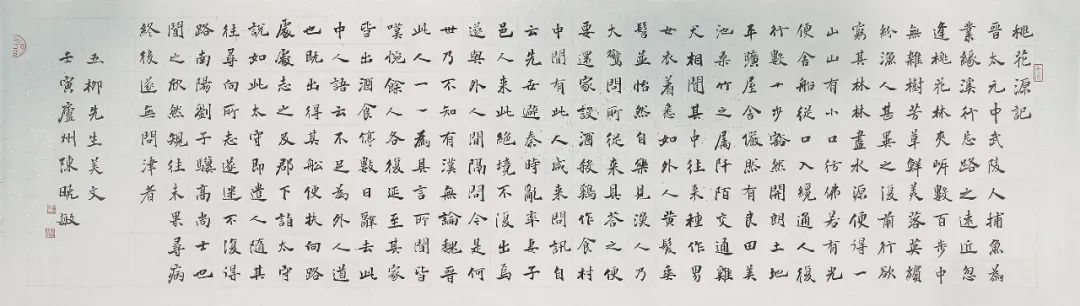 桃花源記
晉太元中武陵人捕魚為
業緣溪行忘路之遠近忽
逢桃花林夾岸數百步中
無雜樹芳草鮮美落英繽
紛漁人甚異之復前行欲
窮其林林盡水源便得一
山山有小口彷彿若有光
便舍船從口入纔通人復
行數十步豁然開朗土地
平曠屋舍儼然有良田美
池桑竹之屬阡陌交通雞
犬相聞其中往來種作男
女衣着悉如外人黃髮垂
髫並怡然自樂見漁人乃
大驚問所從來具答之便
要還家設酒殺雞作食村
中聞有此人咸來問訊自
云先世避秦時亂率妻子
邑人來此絕境不復出焉
遂與外人間隔問今是何
世乃不知有漢無論魏晉
此人一一為具言所聞皆
嘆惋餘人各復延至其家
皆出酒食停數日辭去此
中人語云不足為外人道
也既出得其船便扶向路
處處志之及郡下詣太守
說如此太守即遣人隨其
往尋向所志遂迷不復得
路南陽劉子驥高尚士也
聞之欣然規往未果尋病
終後遂無問津者
五柳先生美文
壬寅廬州陳曉敏